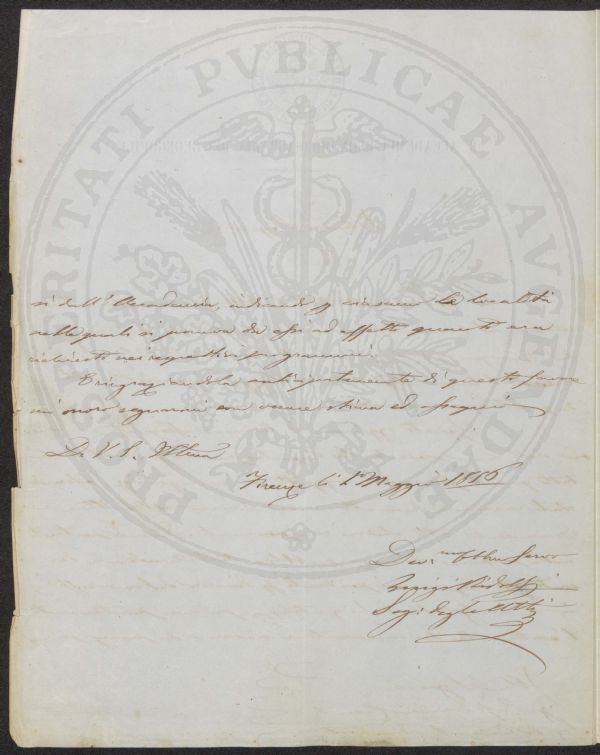 PROSPERITATI PVBLICAE AVGENDAE
si dell'Accademia, indicando p. ciascuno le località
nelle quali si poneva da esso ad effetto quanto era
richiesto nei rispettivi programmi.
Ringraziandola anticipatamente di questo favore
mi onoro segnarmi con vera stima ed ossequio
Di V. S. Illma
Firenze li 1° Maggio 1856
Dev.mo Obb. Servo
Ridolfi
Seg. degli Atti